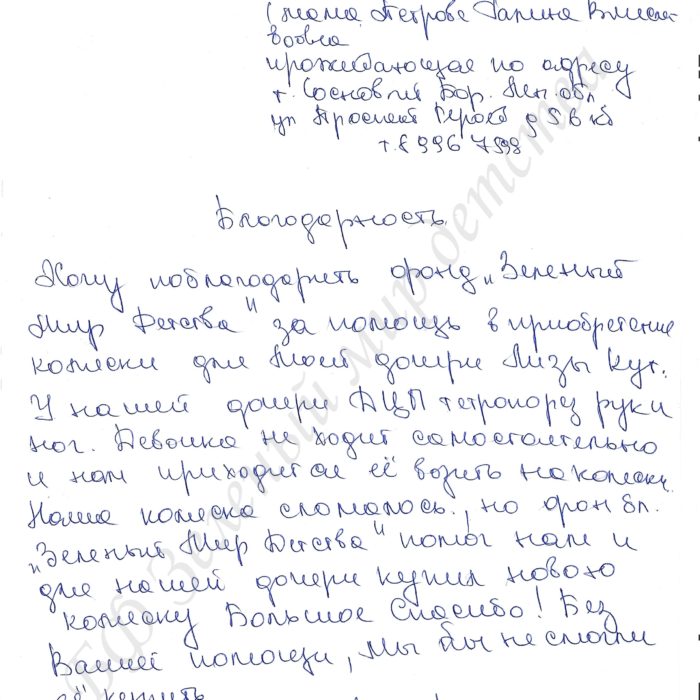 (мама Петрова Галина Вячесла
вовна
проживающая по адресу
г. Сосновый Бор. Лен. обл
ул Проспект Героев
т. 8 996
Благодарность.
Хочу поблагодарить фонд „Зеленый
Мир Детства" за помощь в приобретение
коляски для Моей дочери Лизы Кут.
У нашей дочери ДЦП тетропорез руки
ног. Девочка не ходит самостоятельно
и нам приходится её возить на коляске
Наша коляска сломалось., но фон бл.
„Зеленый Мир Детства" помог нам и
для нашей дочери купил новою
коляску Большое Спасибо! Без
Вашей помощи, мы бы не смогли
её купить
БФ Зеленый мир детства